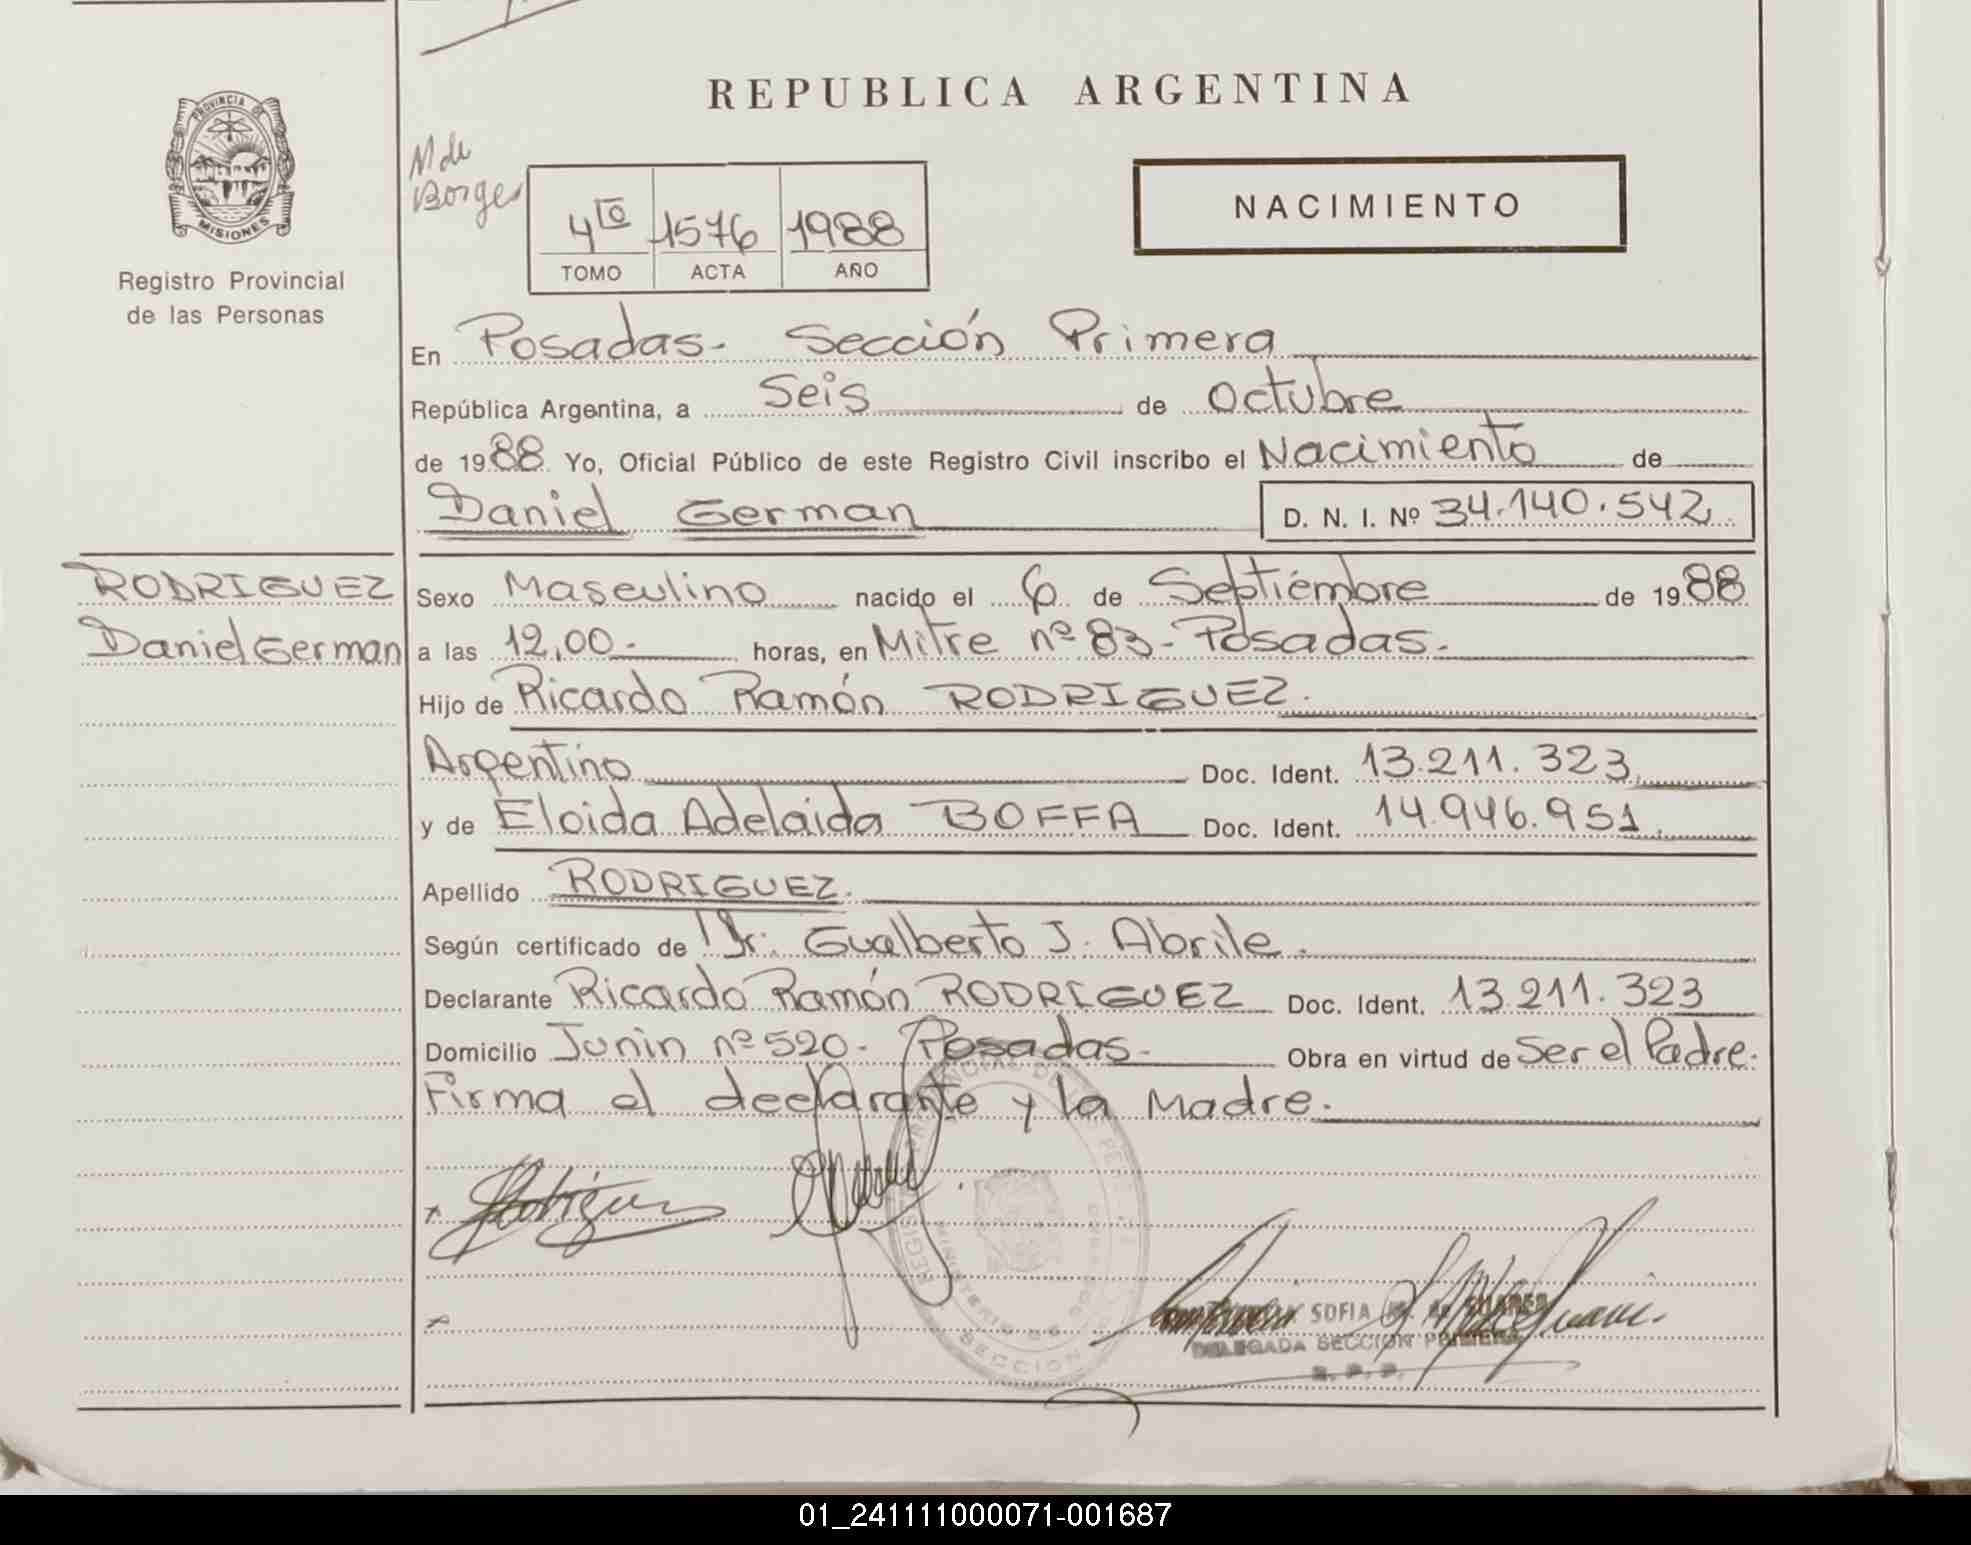 REPUBLICA ARGENTINA
PROVINCIA DE
MISIONES
Registro Provincial
de las Personas
M de
Borges
4to 1576 1988
TOMO ACTA AÑO
NACIMIENTO
En Posadas- Sección Primera
República Argentina, a Seis de Octubre
de 1988 Yo, Oficial Público de este Registro Civil inscribo el Nacimiento de
Daniel German D. N. I. Nº 34.140.542
RODRIGUEZ
Daniel German
Sexo Masculino nacido el 6 de Septiembre de 1988
a las 12,00- horas, en Mitre nº 83- Posadas.
Hijo de Ricardo Ramón RODRIGUEZ.
Argentino Doc. Ident. 13.211.323
y de Eloida Adelaida BOFFA Doc. Ident. 14.946.951
Apellido RODRIGUEZ.
Según certificado de Dr. Gualberto J. Abrile.
Declarante Ricardo Ramón RODRIGUEZ Doc. Ident. 13.211.323
Domicilio Junin nº 520- Posadas- Obra en virtud de Ser el Padre.
Firma el declarante y la Madre.
SOFIA
DELEGADA SECCION PRIMERA
R. P. P.
MINISTERIO DE GOBIERNO
SECCION
01_241111000071-001687